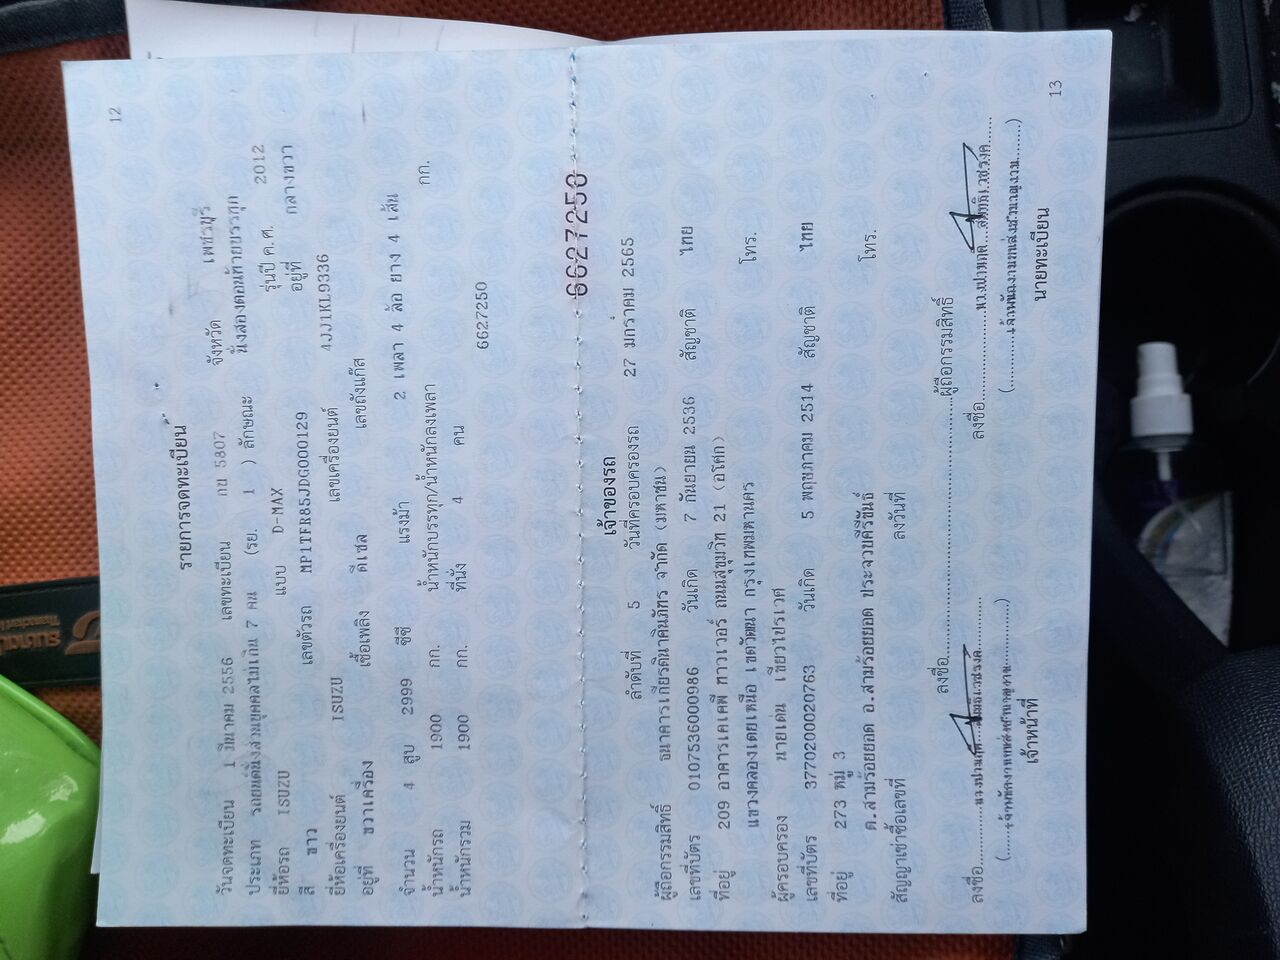 12
รายการจดทะเบียน
วันจดทะเบียน 1 มีนาคม 2556 เลขทะเบียน กข 5807 จังหวัด เพชรบุรี
ประเภท รถยนต์นั่งส่วนบุคคลไม่เกิน 7 คน (รย. 1 ) ลักษณะ นั่งสองตอนท้ายบรรทุก
ยี่ห้อรถ ISUZU แบบ D-MAX รุ่นปี ค.ศ. 2012
สี ขาว เลขตัวรถ MP1TFR85JDG000129 อยู่ที่ กลางขวา
ยี่ห้อเครื่องยนต์ ISUZU เลขเครื่องยนต์ 4JJ1KL9336
อยู่ที่ ขวาเครื่อง เชื้อเพลิง ดีเซล เลขถังแก๊ส
จำนวน 4 สูบ 2999 ซีซี แรงม้า 2 เพลา 4 ล้อ ยาง 4 เส้น
น้ำหนักรถ 1900 กก. น้ำหนักบรรทุก/น้ำหนักลงเพลา กก.
น้ำหนักรวม 1900 กก. ที่นั่ง 4 คน
6627250
6627250
เจ้าของรถ
ลำดับที่ 5 วันที่ครอบครองรถ 27 มกราคม 2565
ผู้ถือกรรมสิทธิ์ ธนาคารเกียรตินาคินภัทร จำกัด (มหาชน)
เลขที่บัตร 0107536000986 วันเกิด 7 กันยายน 2536 สัญชาติ ไทย
ที่อยู่ 209 อาคารเคเคพี ทาวเวอร์ ถนนสุขุมวิท 21 (อโศก)
แขวงคลองเตยเหนือ เขตวัฒนา กรุงเทพมหานคร โทร.
ผู้ครอบครอง นายเด่น เขียวไปรเวศ
เลขที่บัตร 3770200020763 วันเกิด 5 พฤษภาคม 2514 สัญชาติ ไทย
ที่อยู่ 273 หมู่ 3
ต.สามร้อยยอด อ.สามร้อยยอด ประจวบคีรีขันธ์ โทร.
สัญญาเช่าซื้อเลขที่ ลงวันที่
ลงชื่อ ผู้ถือกรรมสิทธิ์
ลงชื่อ ลงชื่อ
(เจ้าพนักงานขนส่งชำนาญงาน) (เจ้าพนักงานขนส่งชำนาญงาน)
เจ้าหน้าที่ นายทะเบียน
13